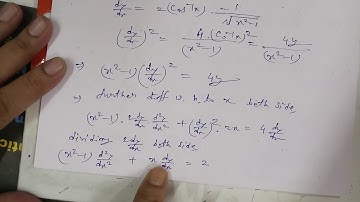 dy/dx = 2(Cos⁻¹x) · -1/√x²-1
(dy/dx)² = 4.(Cos⁻¹x)²/(x²-1) = 4y/(x²-1)
⇒ (x²-1)(dy/dx)² = 4y
⇒ further diff w.r.to x both side
(x²-1). 2dy/dx d²y/dx² + (dy/dx)². 2x = 4 dy/dx
dividing 2dy/dx both side
(x²-1) d²y/dx² + x dy/dx = 2